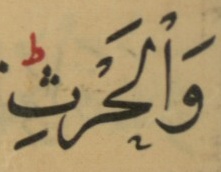 وَالْحَرْثِ ط